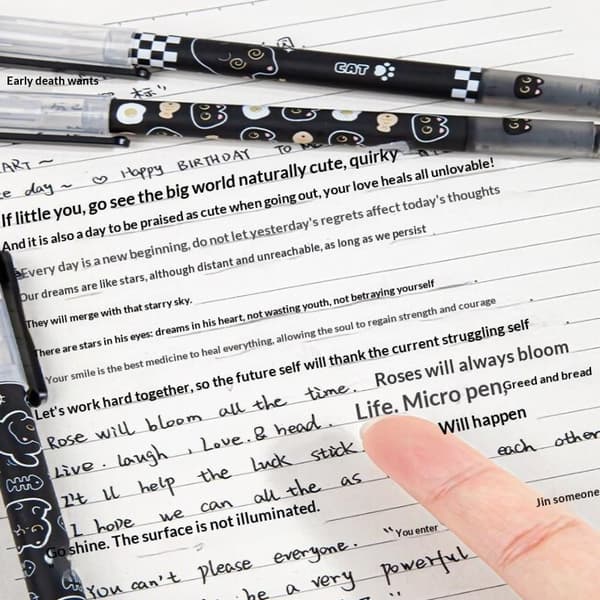 CAT
Early death wants
ART ~
Happy BIRTHDAY TO
e day ~
If little you, go see the big world naturally cute, quirky
And it is also a day to be praised as cute when going out, your love heals all unlovable!
Every day is a new beginning, do not let yesterday's regrets affect today's thoughts
Our dreams are like stars, although distant and unreachable, as long as we persist
They will merge with that starry sky.
There are stars in his eyes: dreams in his heart, not wasting youth, not betraying yourself
Your smile is the best medicine to heal everything, allowing the soul to regain strength and courage
Let's work hard together, so the future self will thank the current struggling self
Rose will bloom all the time. Roses will always bloom
Live. laugh, Love. & head. Life. Micro pen, Greed and bread
It ll help the luck stick Will happen each other
I hope we can all the as
Go shine. The surface is not illuminated. Jin someone
You can't please everyone. "You enter
be a very powerful